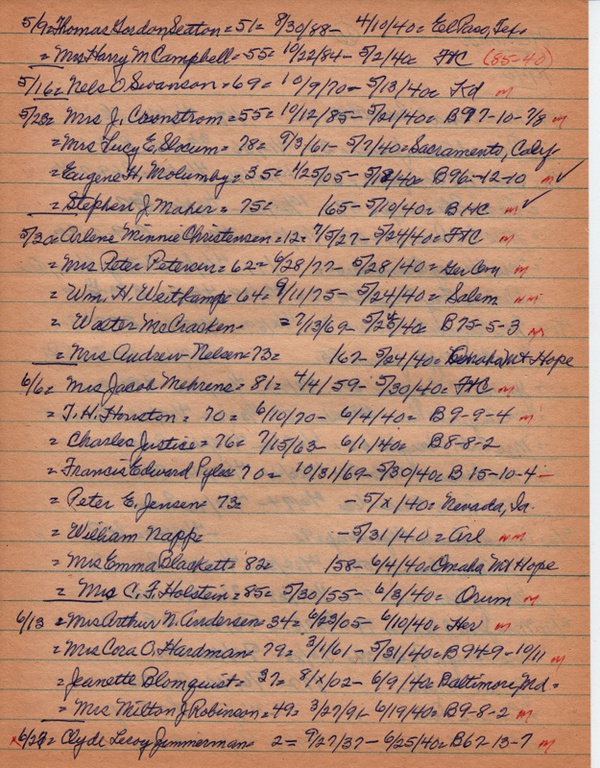 5/9= Thomas Gordon Sexton = 51= 8/30/88- 4/10/40= El Paso, Tex.
= Mrs Harry M Campbell= 55= 10/22/84- 5/2/40= FHC (85-40)
5/16= Nels O. Swanson= 69= 10/9/70- 5/13/40= Kd m
5/23= Mrs J. Cronstrom= 55= 10/12/85- 5/21/40= B97-10-7/8 m
= Mrs Lucy E. Slocum= 78= 9/3/61- 5/7/40= Sacramento, Calif
= Eugene H. Molumby= 35= 4/25/05- 5/18/40= B96-12-10 m ✓
= Stephen J. Maher= 75= 165- 5/10/40= B HC m ✓
5/30= Arlene Minnie Christensen= 12= 7/5/27- 5/24/40= FHC m
= Mrs Peter Petersen= 62= 6/28/77- 5/28/40= Ger Cem m
= Wm. H. Weitkamp= 64= 9/11/75- 5/24/40= Salem m
= Walter McCracken= = 7/13/69- 5/25/40= B75-5-3 m
= Mrs Andrew Nelsen= 73= 167- 5/24/40= Omaha Mt Hope
6/6= Mrs Jacob Mehrens= 81= 4/4/59- 5/30/40= FHC m
= T. H. Houston= 70= 6/10/70- 6/4/40= B9-9-4 m
= Charles Justice= 76= 7/15/63- 6/1/40= B8-8-2
= Francis Edward Pyle= 70= 10/31/69- 5/30/40= B15-10-4 -
= Peter E. Jensen= 73= - 5/x/40= Nevada, Ia.
= William Rapp= - 5/31/40= Arl m
= Mrs Emma Blackett= 82= 158- 6/4/40= Omaha Mt Hope
= Mrs C. F. Holstein= 85= 5/30/55- 6/3/40= Orum m
6/13= Mrs Arthur N. Andersen= 34= 6/23/05- 6/10/40= Her m
= Mrs Cora O. Hardman= 79= 3/1/61- 5/31/40= B949-10/11 m
= Jeanette Blomquist= 37= 8/x/02- 6/9/40= Baltimore, Md.
= Mrs Milton J Robinson= 49= 3/27/91- 6/19/40= B9-8-2 m
x 6/27= Clyde Leroy Jimmerman= 2= 9/27/37- 6/25/40= B67-13-7 m